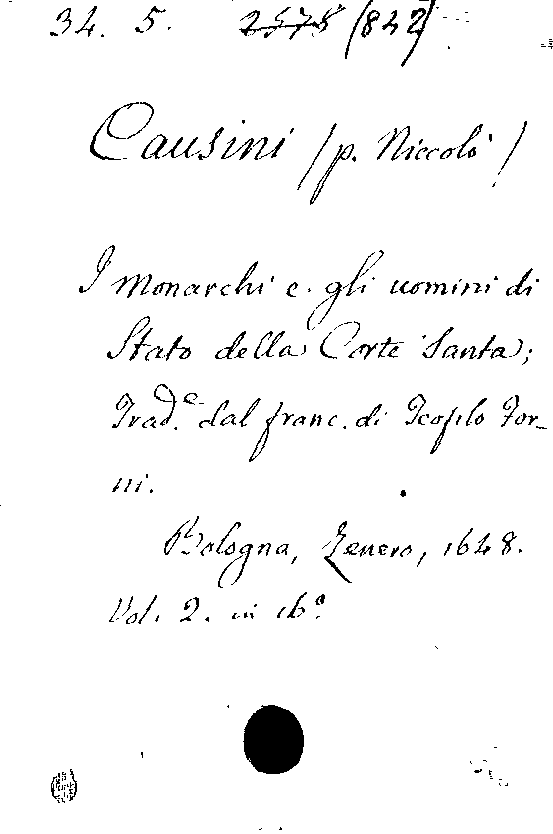 34. 5. 2578 (842)
Causini (p. Niccolò)
I Monarchi e gli uomini di
Stato della Corte Santa;
Trad.e dal franc. di Teofilo For-
ni.
Bologna, Zenero, 1648.
Vol. 2. in 16º